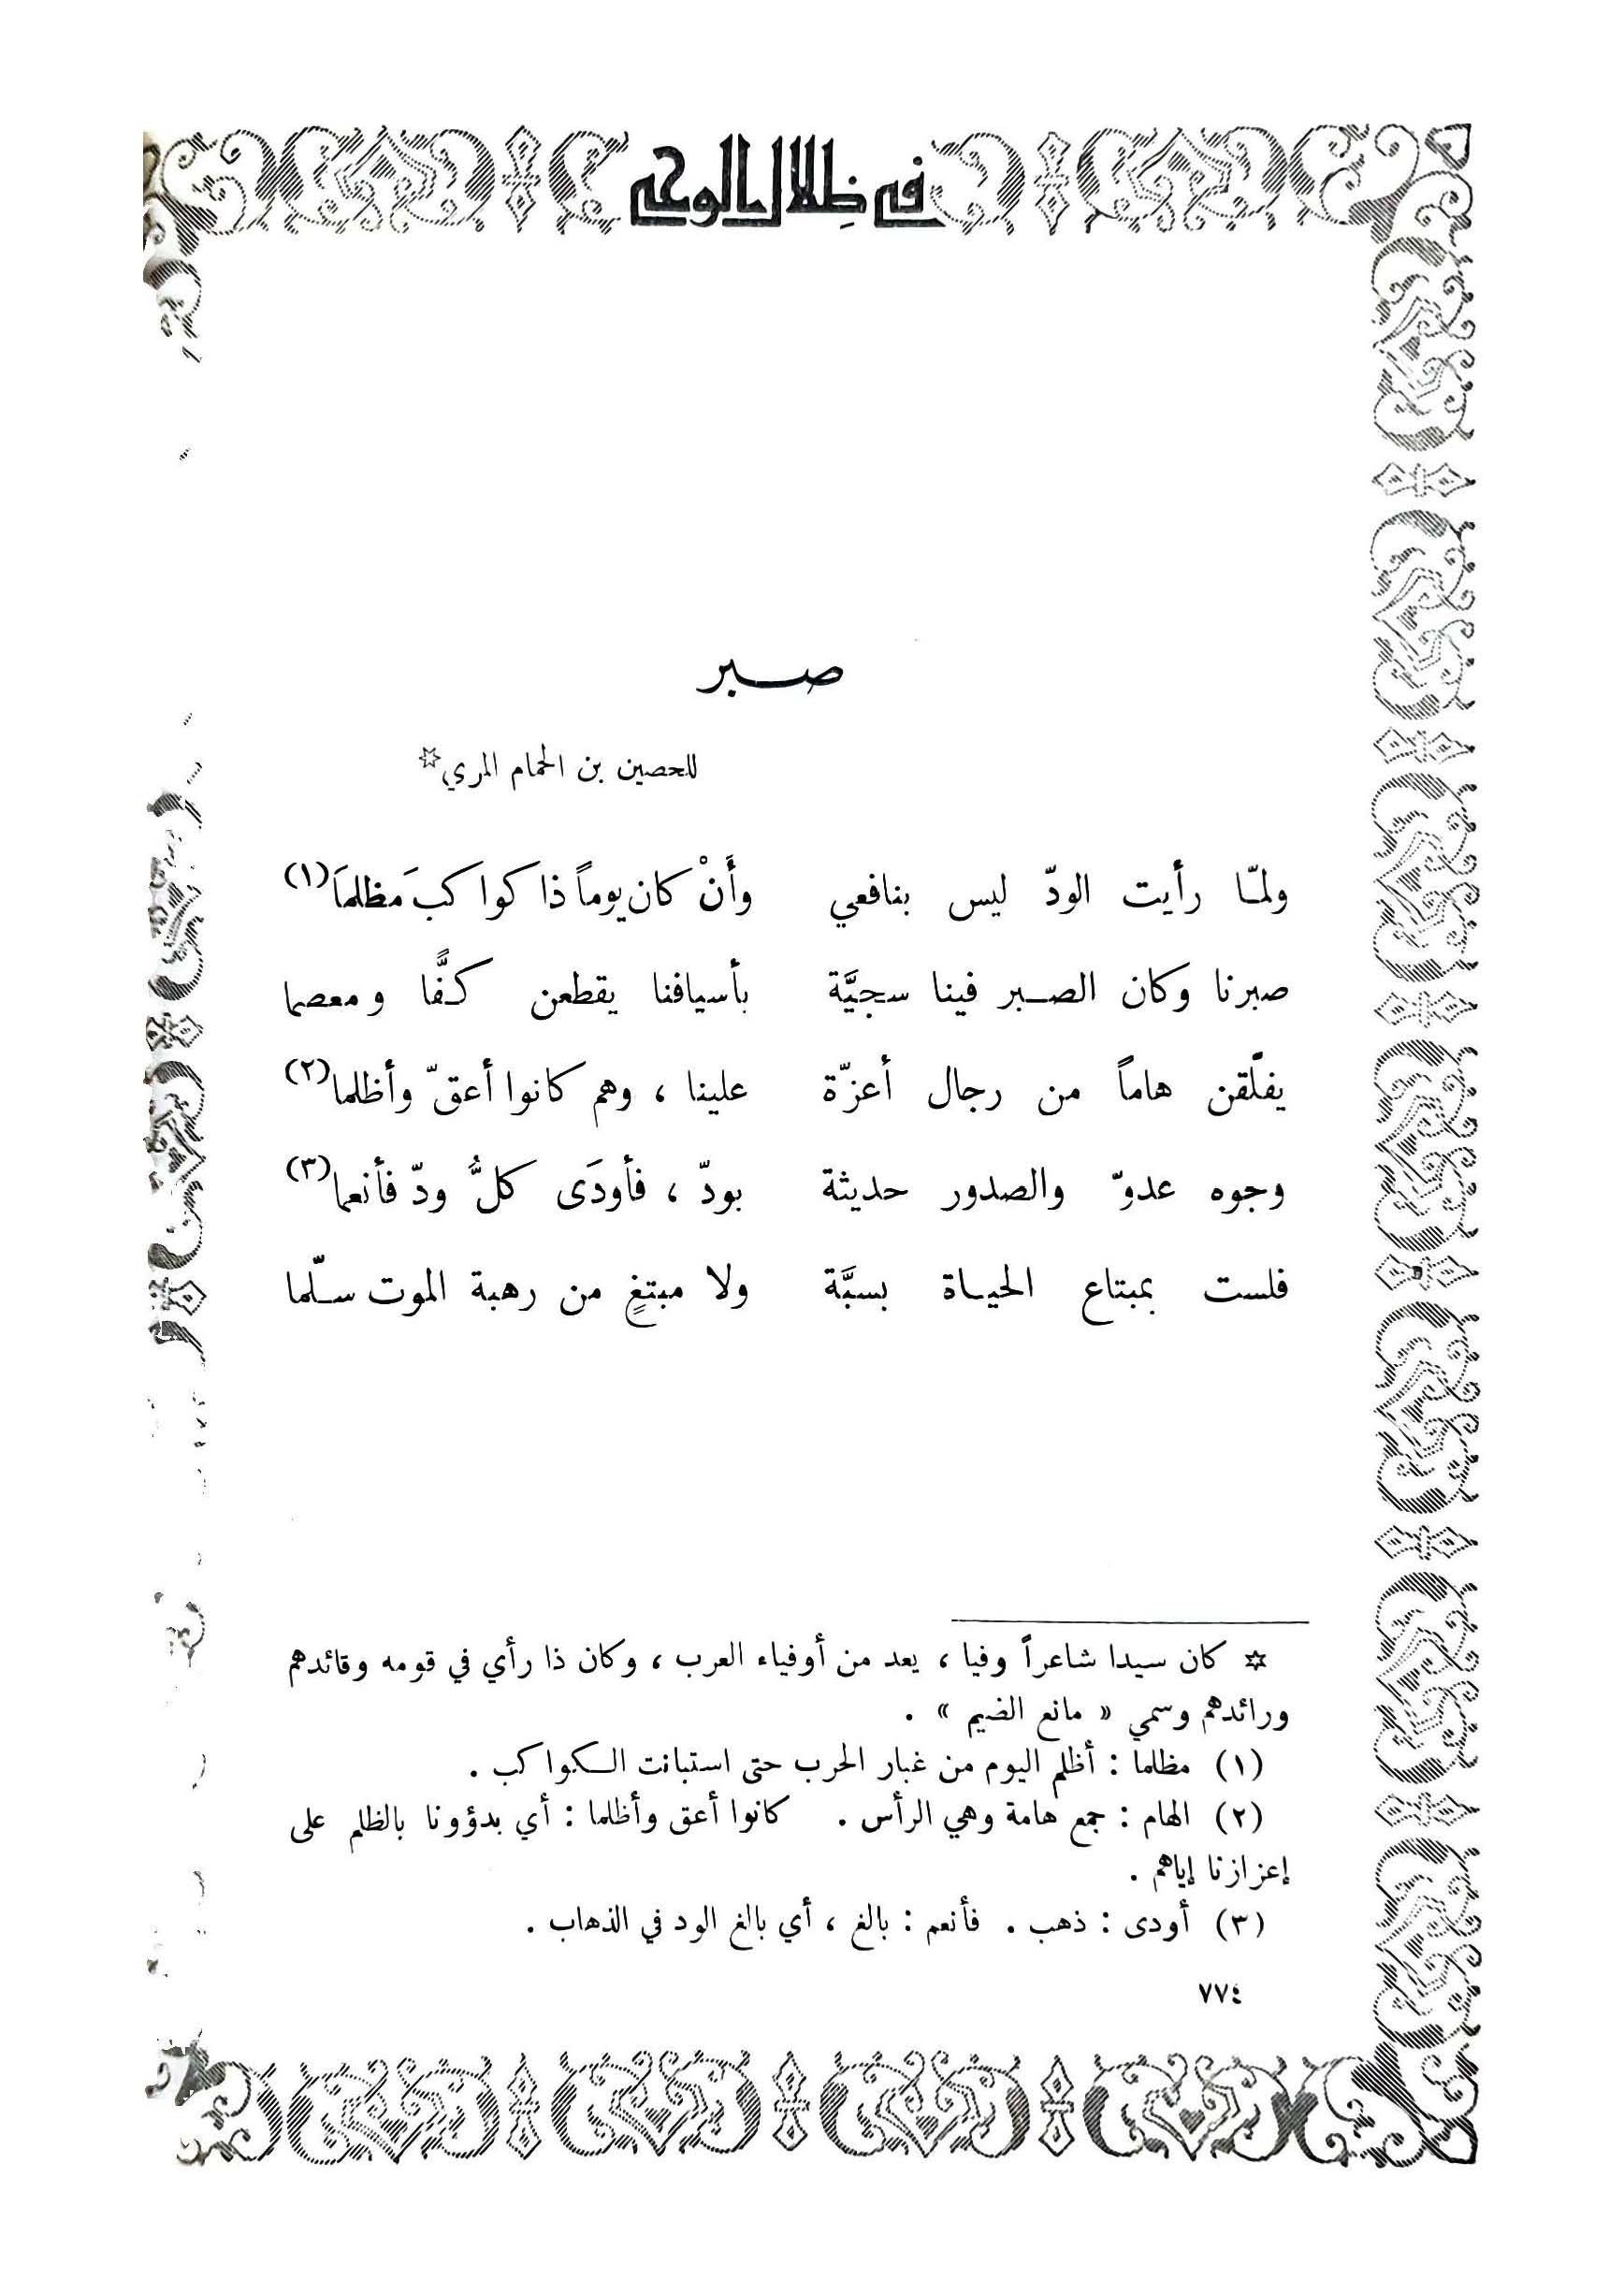 في ظِلال الوحي
صبر
للحصين بن الحمام المري☆
ولمّا رأيت الودّ ليس بنافعي وأَنْ كان يوماً ذا كواكبَ مظلماَ(١)
صبرنا وكان الصبر فينا سجيَّة بأسيافنا يقطعن كفًّا ومعصما
يفلّقن هاماً من رجال أعزّة علينا ، وهم كانوا أعقّ وأظلما(٢)
وجوه عدوّ والصدور حديثة بودّ ، فأودَى كلُّ ودّ فأنعما(٣)
فلست بمبتاع الحياة بسبَّة ولا مبتغٍ من رهبة الموت سلّما
☆ كان سيدا شاعراً وفيا ، يعد من أوفياء العرب ، وكان ذا رأي في قومه وقائدهم
ورائدهم وسمي « مانع الضيم » .
(١) مظلما : أظلم اليوم من غبار الحرب حتى استبانت الكواكب .
(٢) الهام : جمع هامة وهي الرأس . كانوا أعق وأظلما : أي بدؤونا بالظلم على
إعزازنا إياهم .
(٣) أودى : ذهب . فأنعم : بالغ ، أي بالغ الود في الذهاب .
٧٧٤